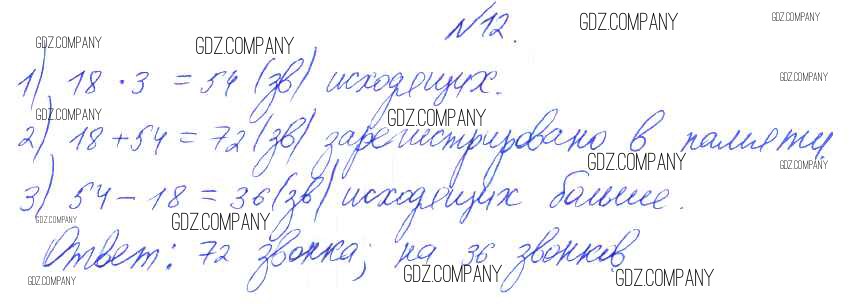 №12.
1) 18 · 3 = 54 (зв) исходящих.
2) 18 + 54 = 72 (зв) зарегистрировано в памяти
3) 54 - 18 = 36 (зв) исходящих больше.
Ответ: 72 звонка; на 36 звонков
GDZ.COMPANY
GDZ.COMPANY
GDZ.COMPANY
GDZ.COMPANY
GDZ.COMPANY
GDZ.COMPANY
GDZ.COMPANY
GDZ.COMPANY
GDZ.COMPANY
GDZ.COMPANY
GDZ.COMPANY
GDZ.COMPANY
GDZ.COMPANY
GDZ.COMPANY